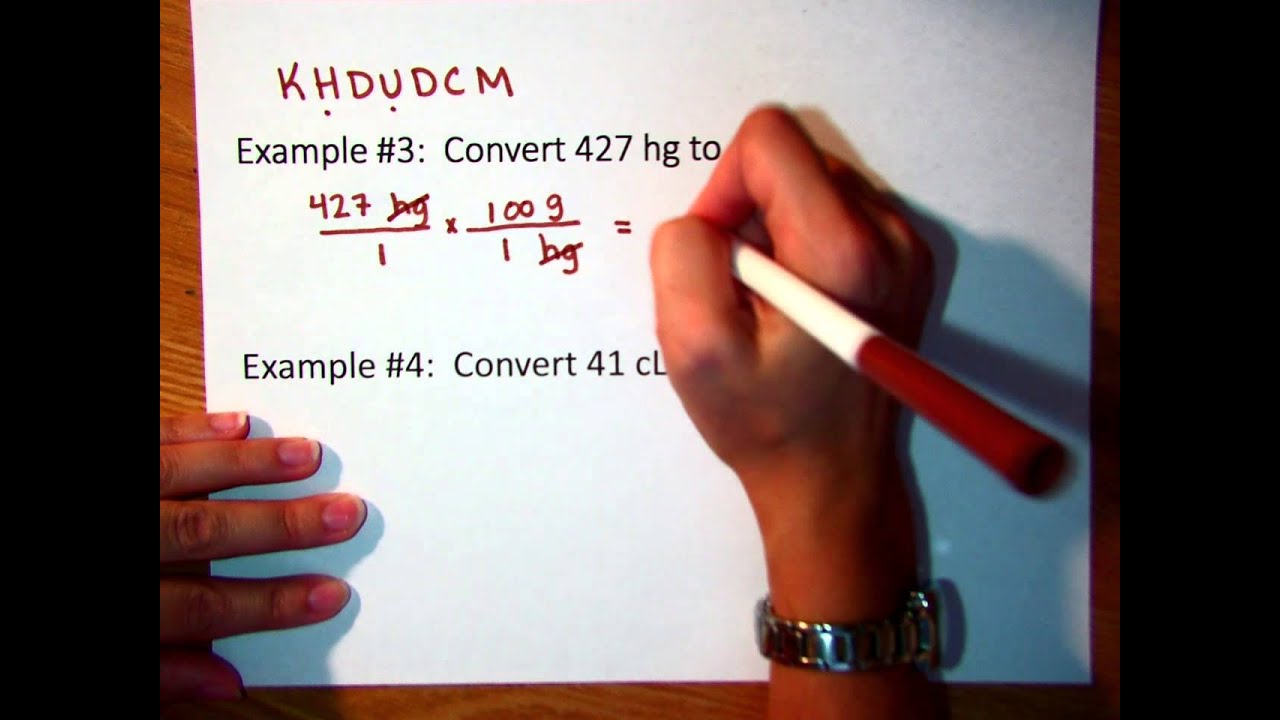 KHDUDCM
Example #3: Convert 427 hg to
427 hg / 1 × 100 g / 1 hg =
Example #4: Convert 41 cL